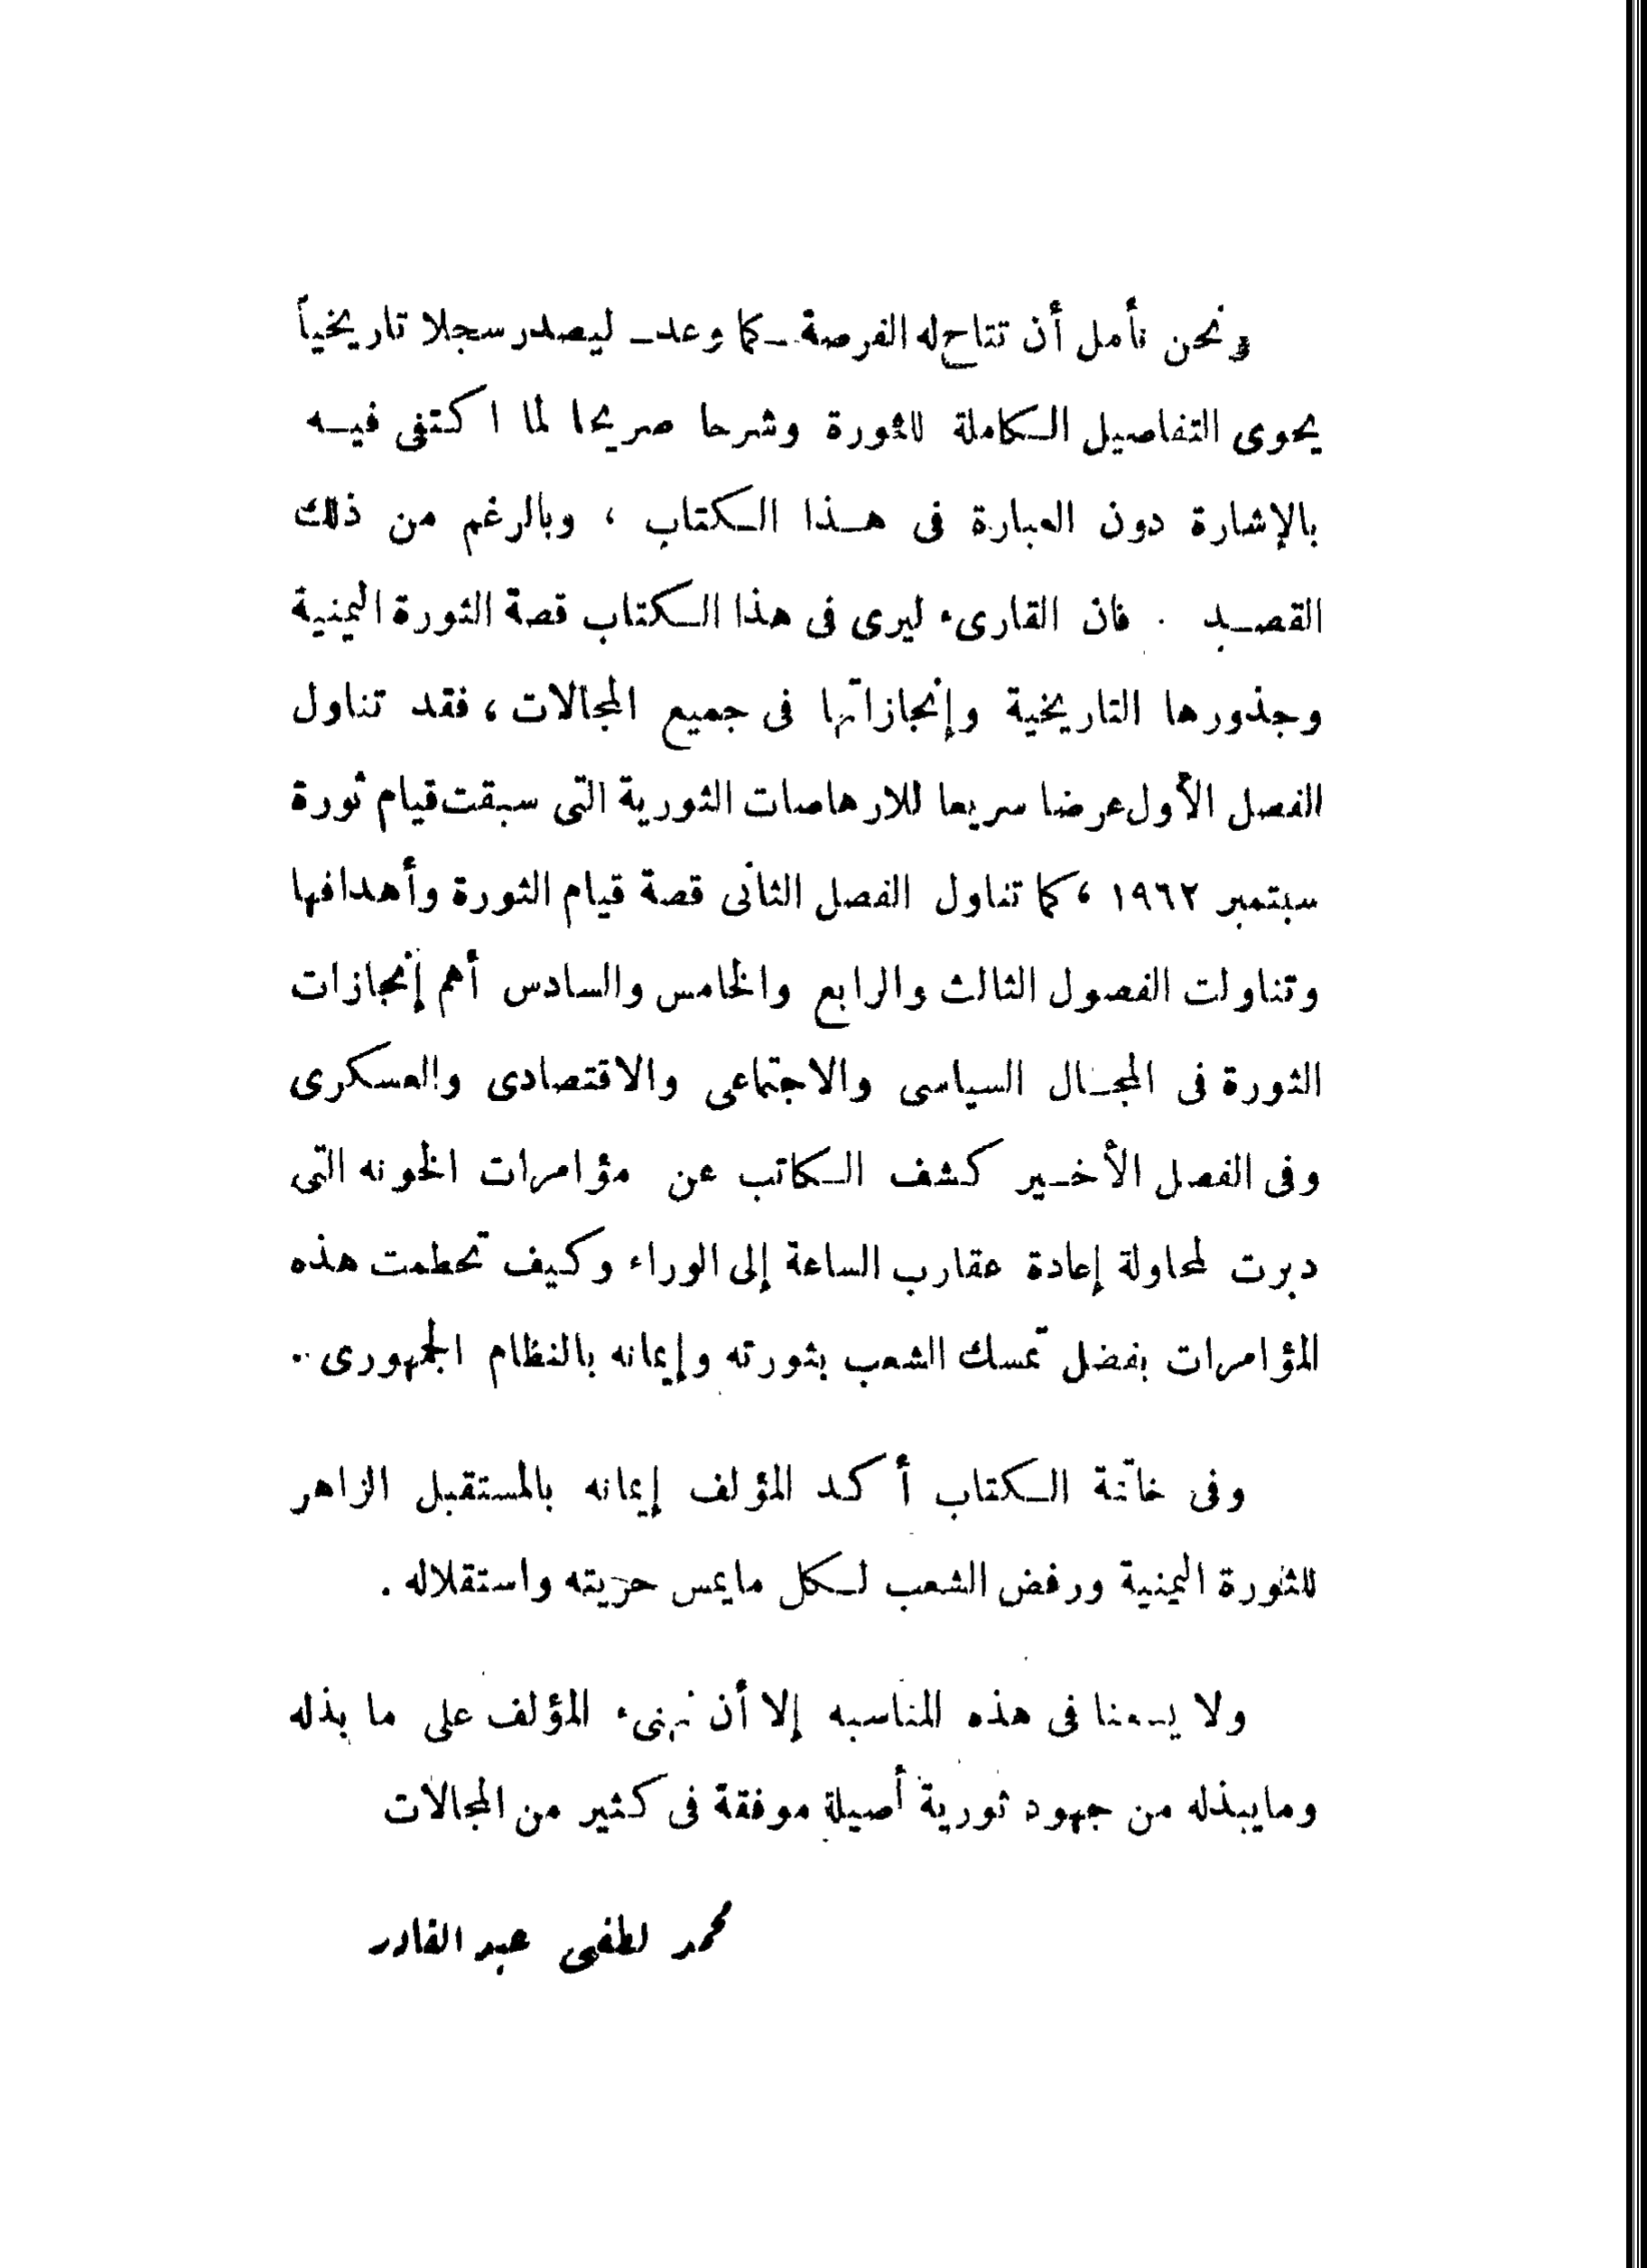 ونحن نأمل أن تتاح له الفرصة ـ كما وعد ـ ليصدر سجلا تاريخياً
يحوى التفاصيل الكاملة للثورة وشرحا صريحا لما اكتفى فيه
بالإشارة دون العبارة فى هذا الكتاب ، وبالرغم من ذلك
القصد . فان القارىء ليرى فى هذا الكتاب قصة الثورة اليمنية
وجذورها التاريخية وإنجازاتها فى جميع المجالات ، فقد تناول
الفصل الأول عرضا سريعا للارهاصات الثورية التى سبقت قيام ثورة
سبتمبر ١٩٦٢ ، كما تناول الفصل الثانى قصة قيام الثورة وأهدافها
وتناولت الفصول الثالث والرابع والخامس والسادس أهم إنجازات
الثورة فى المجال السياسى والاجتماعى والاقتصادى والعسكرى
وفى الفصل الأخير كشف الكاتب عن مؤامرات الخونه التى
دبرت لمحاولة إعادة عقارب الساعة إلى الوراء وكيف تحطمت هذه
المؤامرات بفضل تمسك الشعب بثورته وإيمانه بالنظام الجمهورى ..
وفى خاتمة الكتاب أكد المؤلف إيمانه بالمستقبل الزاهر
للثورة اليمنية ورفض الشعب لكل مايمس حريته واستقلاله .
ولا يسعنا فى هذه المناسبه إلا أن نهنىء المؤلف على ما بذله
ومايبذله من جهود ثورية أصيلة موفقة فى كثير من المجالات
محمد لطفى عبد القادر